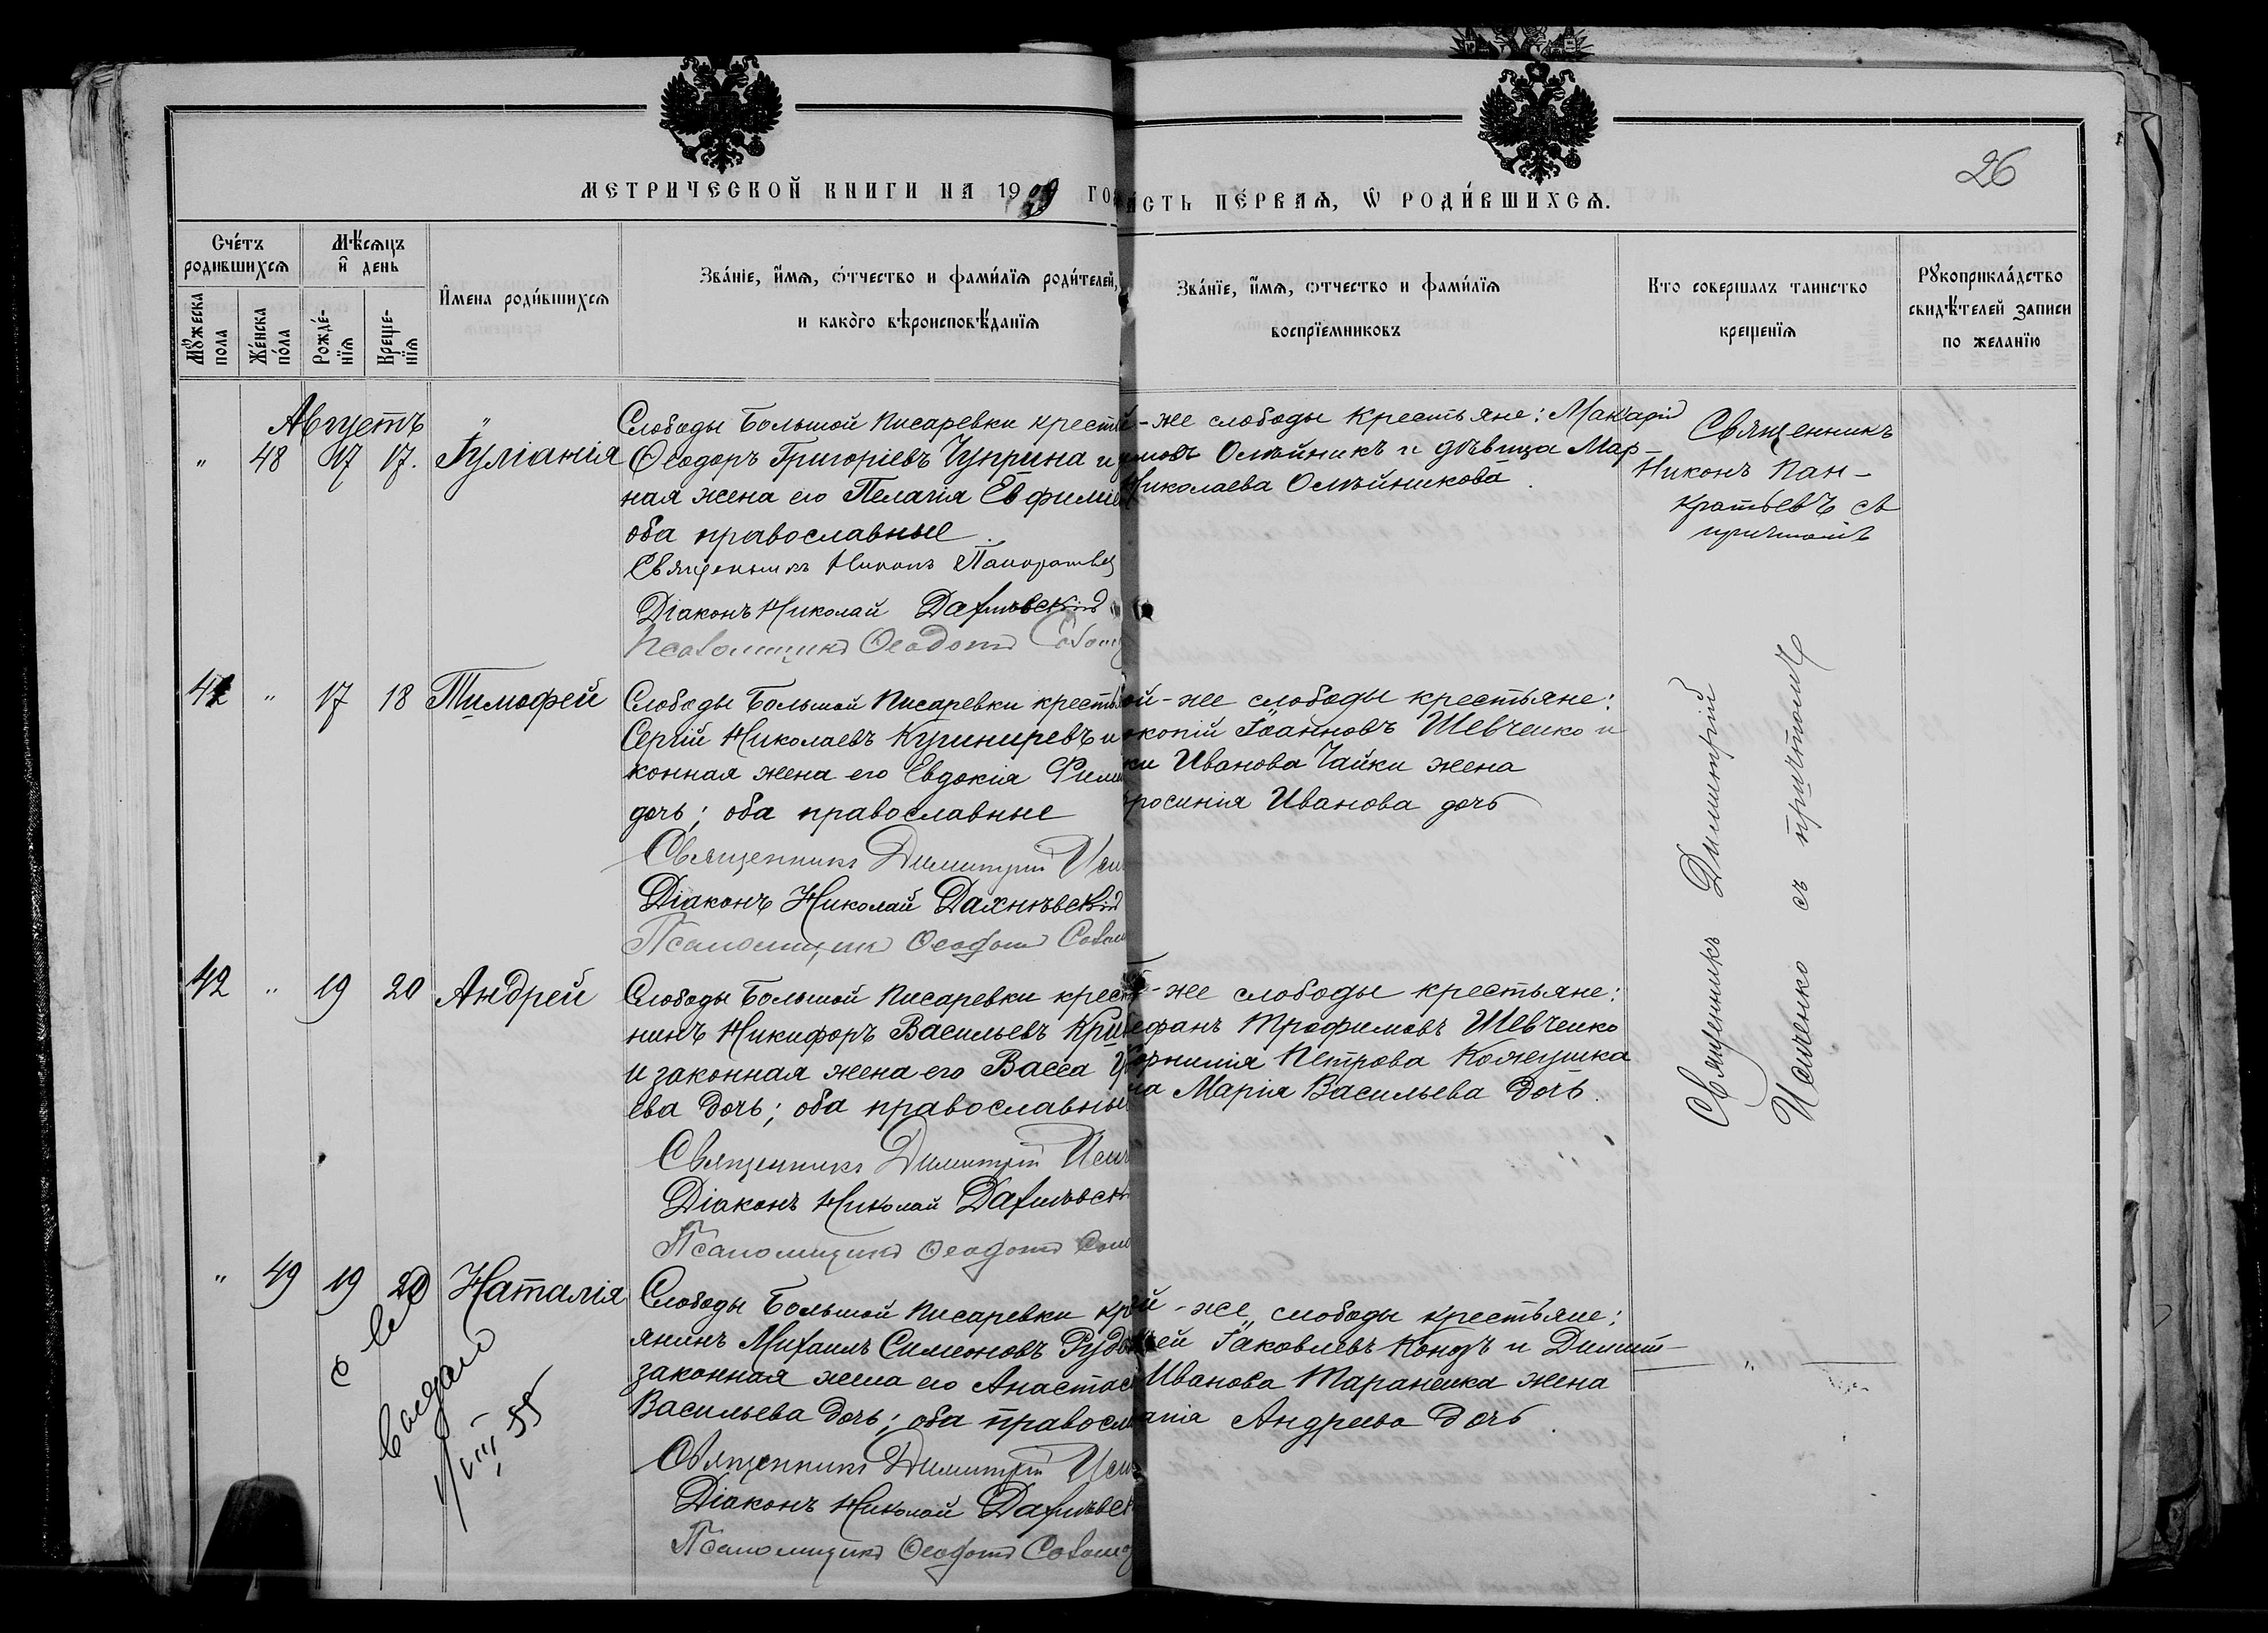 МЕТРИЧЕСКОЙ КНИГИ НА 1909 ГО
СТЬ ПЕ́РВАѦ, Ѡ РОДИ́ВШИХСѦ.
26
Сче́тъ родившихсѧ
Мѣ́сѧцъ и҆ день
Мꙋ́жеска пола
Же́нска по́ла
Рожде́-нїѧ
Креще-нїѧ
И҆мена роди́вшихсѧ
Зва́нїе, и҆́мѧ, ѻ҆́тчество и фами́лїѧ роди́телей,
и како̀го вѣроисповѣ́данїѧ
Зва́нїе, и҆́мѧ, ѻтчество и фами́лїѧ
воспрїемниковъ
Кто совершалъ таинство
крещенїѧ
Рꙋкоприкла́дство
свидѣ́телей записи
по желанїю
Августъ
" 48 17 17. Іуліанія
Слободы Большой Писаревки крест
Ѳеодоръ Григоріевъ Чуприна и
ная жена его Пелагія Евфиміе
оба православные.
Священникъ Никонъ Панкратьев
Діаконъ Николай Дахнѣвскій
Псаломщикъ Ѳеодотъ
- же слободы крестьяне: Макарій
Олѣйникъ и дѣвица Мар-
Николаева Олѣйникова.
Священникъ
Никонъ Пан-
кратьевъ съ
причтомъ
" 17 18 Тимофей
Слободы Большой Писаревки кресть
Сергій Николаевъ Куширевъ и
конная жена его Евдокія Фили
дочь; оба православные
Священникъ Димитрій
Діаконъ Николай Дахнѣвскій
Псаломщикъ Ѳеодотъ
ой-же слободы крестьяне:
окопій Іоанновъ Шевченко и
ки Иванова Чайки жена
росинія Иванова дочь
Священникъ Димитрій
съ причтомъ
42 " 19 20 Андрей
Слободы Большой Писаревки крест
нинъ Никифоръ Васильевъ Кри
и законная жена его Васса
ева дочь; оба православны
Священникъ Димитрій
Діаконъ Николай Дахнѣвск
Псаломщикъ Ѳеодотъ
-же слободы крестьяне:
ефанъ Трофимовъ Шевченко
орнилія Петрова Кожушка
на Марія Васильева дочь.
" 49 19 20 Наталія
Слободы Большой Писаревки кр
янинъ Михаилъ Симеоновъ Руд
законная жена его Анастас
Васильева дочь; оба правосл
Священникъ Димитрій
Діаконъ Николай Дахнѣвск
Псаломщикъ Ѳеодотъ
й-же слободы крестьяне:
ей Іаковлевъ Кондъ и Димит-
Иванова Тараненка жена
анія Андреева дочь.
"
с во
выдано
VIII 55